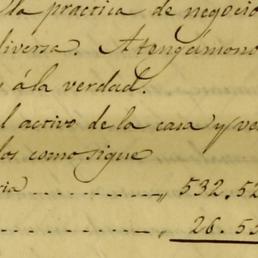 la practica de negocio
diversa. Atengamono
y á la verdad.
l activo de la casa y ve
los como sigue
ria ........... „ 532.52
........... „ 26.55